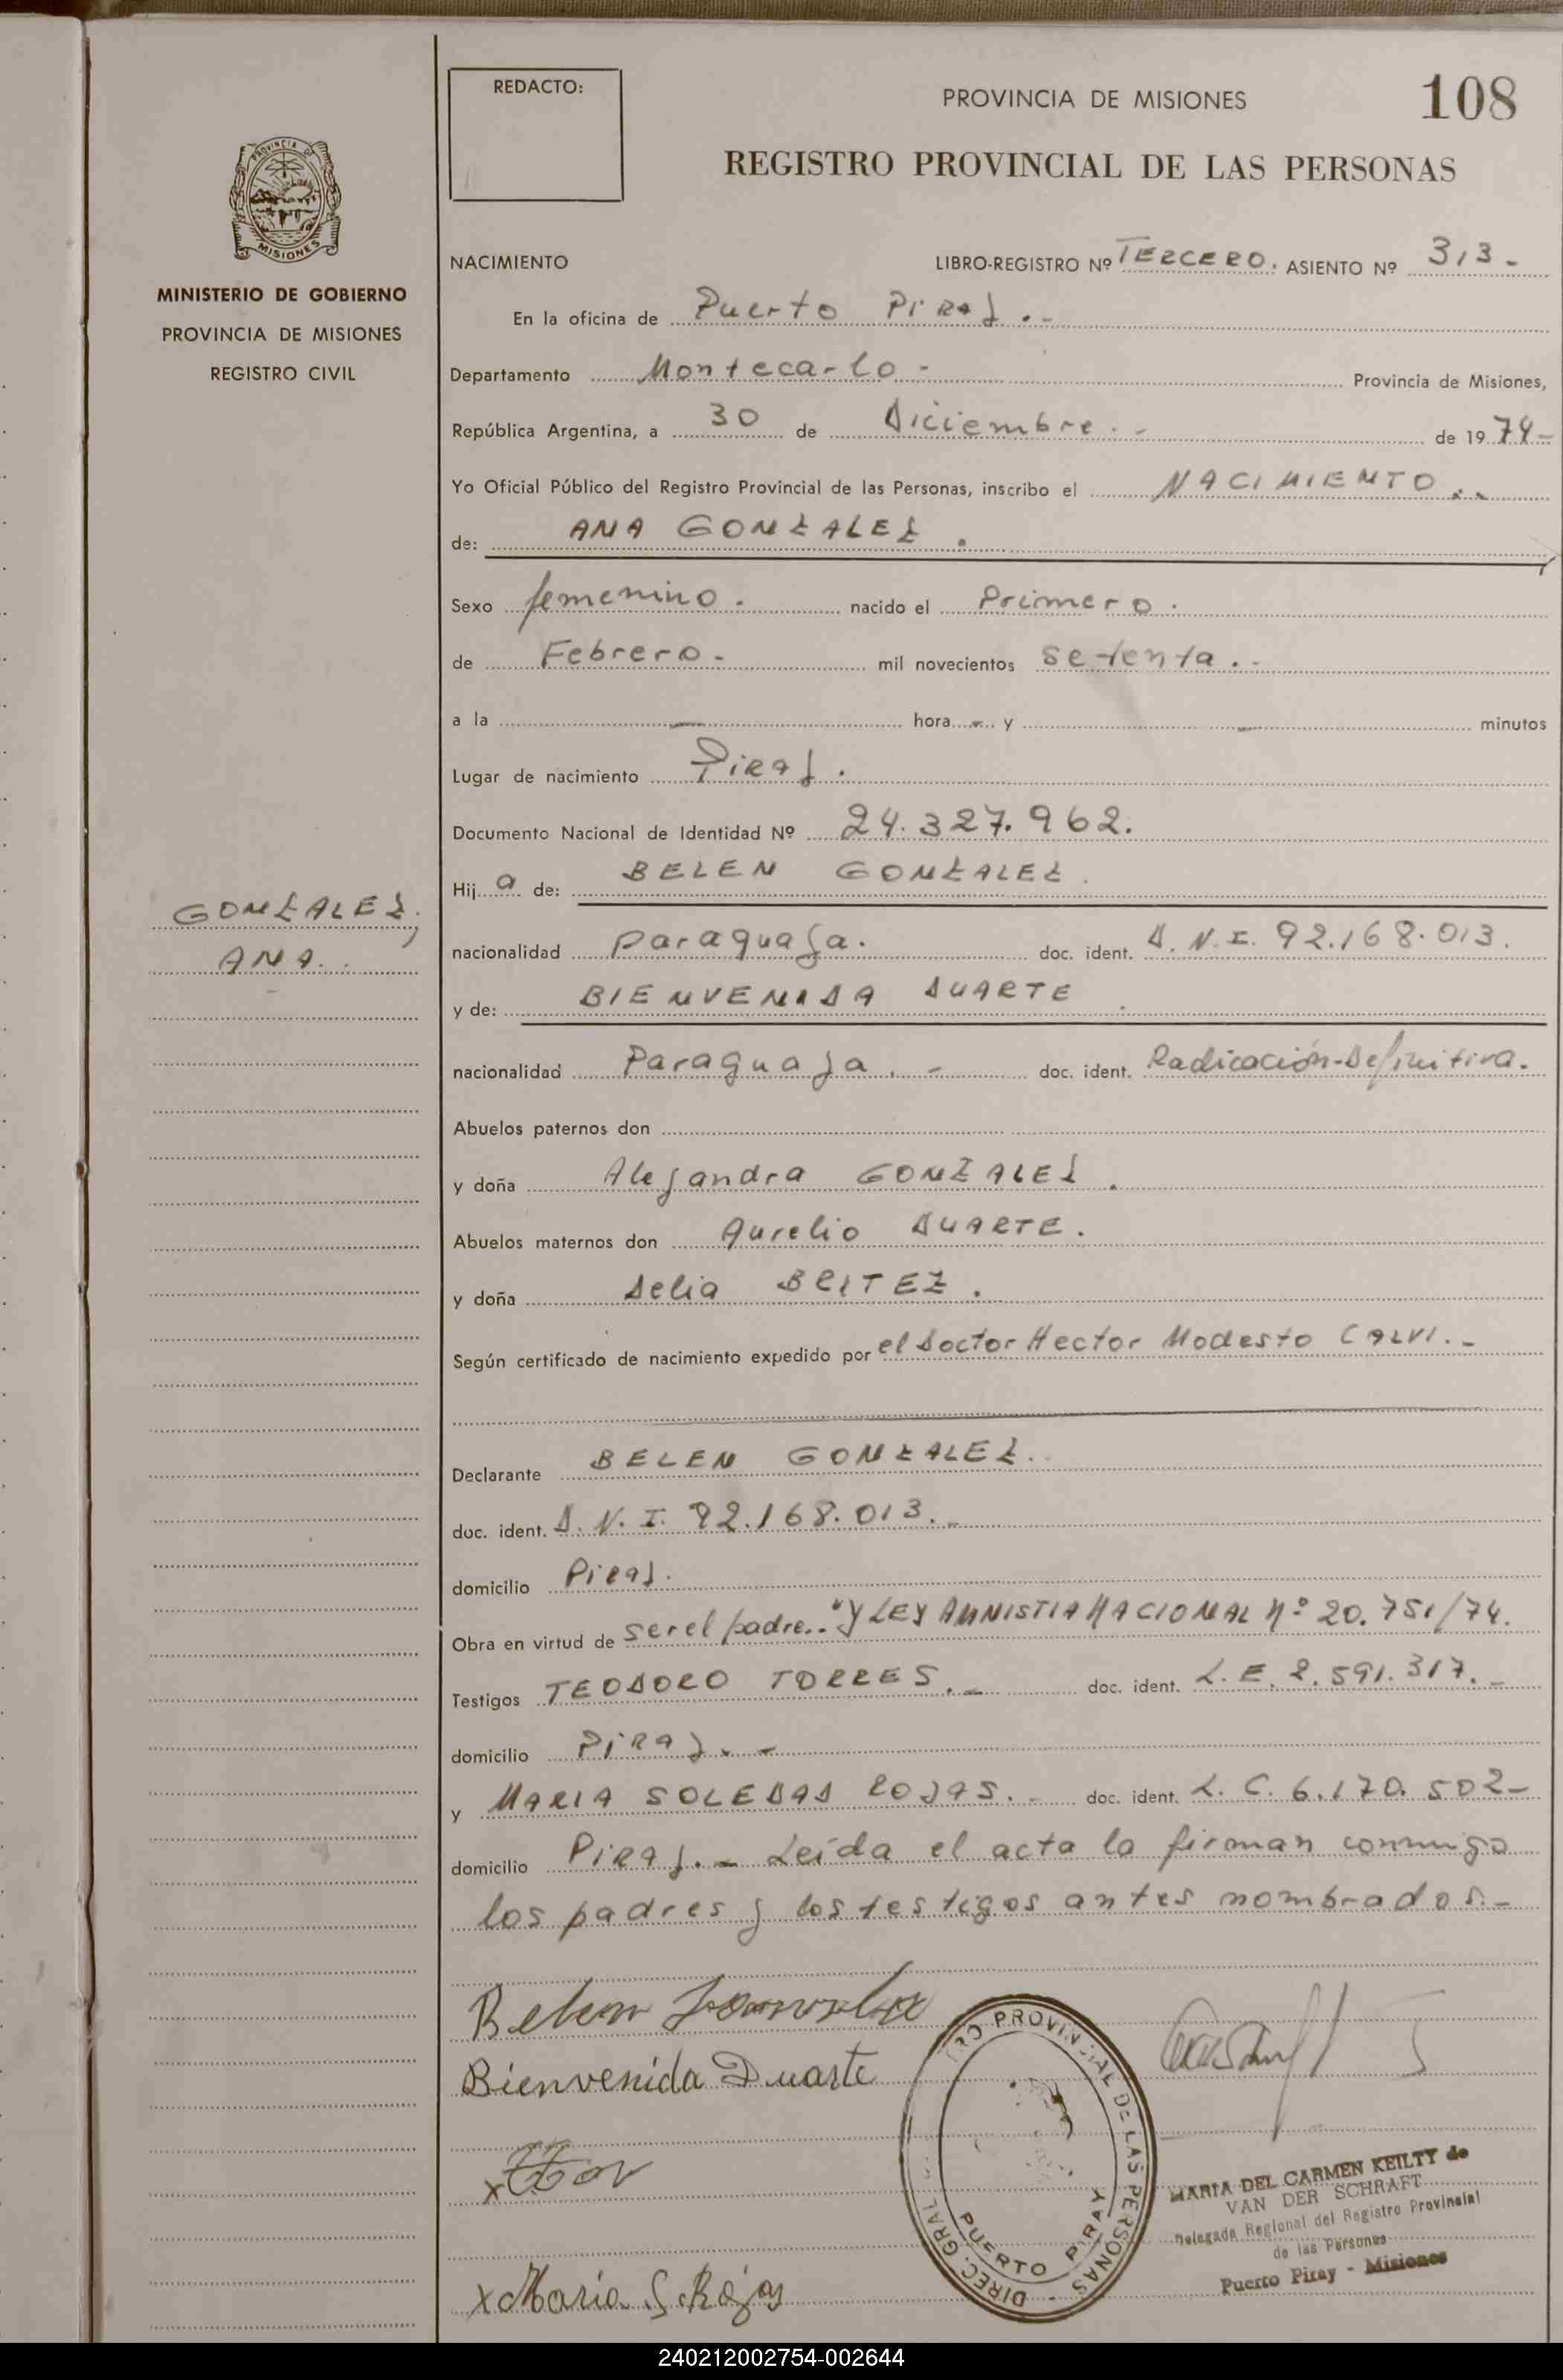 REDACTO:
PROVINCIA DE MISIONES
108
REGISTRO PROVINCIAL DE LAS PERSONAS
PROVINCIA DE
MISIONES
MINISTERIO DE GOBIERNO
PROVINCIA DE MISIONES
REGISTRO CIVIL
NACIMIENTO LIBRO-REGISTRO Nº TERCERO. ASIENTO Nº 313-
En la oficina de Puerto Piray.-
Departamento Montecarlo- Provincia de Misiones,
República Argentina, a 30 de Diciembre.- de 19 74-
Yo Oficial Público del Registro Provincial de las Personas, inscribo el NACIMIENTO..
de: ANA GONZALEZ.
Sexo femenino. nacido el Primero.
de Febrero- mil novecientos setenta.-
a la — hora - y — minutos
Lugar de nacimiento Piray.
Documento Nacional de Identidad Nº 24.327.962.
Hij a de: BELEN GONZALEZ.
GONZALEZ,
ANA.
nacionalidad paraguaya. doc. ident. D.N.I. 92.168.013.
y de: BIENVENIDA DUARTE.
nacionalidad Paraguaya.- doc. ident. Radicación-Definitiva.
Abuelos paternos don
y doña Alejandra GONZALEZ.
Abuelos maternos don Aurelio DUARTE.
y doña Delia BRITEZ.
Según certificado de nacimiento expedido por el Doctor Hector Modesto CALVI.-
Declarante BELEN GONZALEZ.
doc. ident. D.N.I. 92.168.013.-
domicilio Piray.
Obra en virtud de ser el padre.. "y LEY AMNISTIA NACIONAL Nº 20.751/74.
Testigos TEODORO TORRES.- doc. ident. L.E. 2.591.317.-
domicilio Piray.-
y MARIA SOLEDAD ROJAS.- doc. ident. L.C. 6.170.502-
domicilio Piray.- Leída el acta la firman conmigo
los padres y los testigos antes nombrados.-
Belen Gonzalez
Bienvenida Duarte
x Maria S. Rojas
PROVINCIAL DE LAS PERSONAS - DIREC. GRAL
PUERTO PIRAY
MARIA DEL CARMEN KEILTY de
VAN DER SCHRAFT
Delegada Regional del Registro Provincial
de las Personas
Puerto Piray - Misiones
240212002754-002644